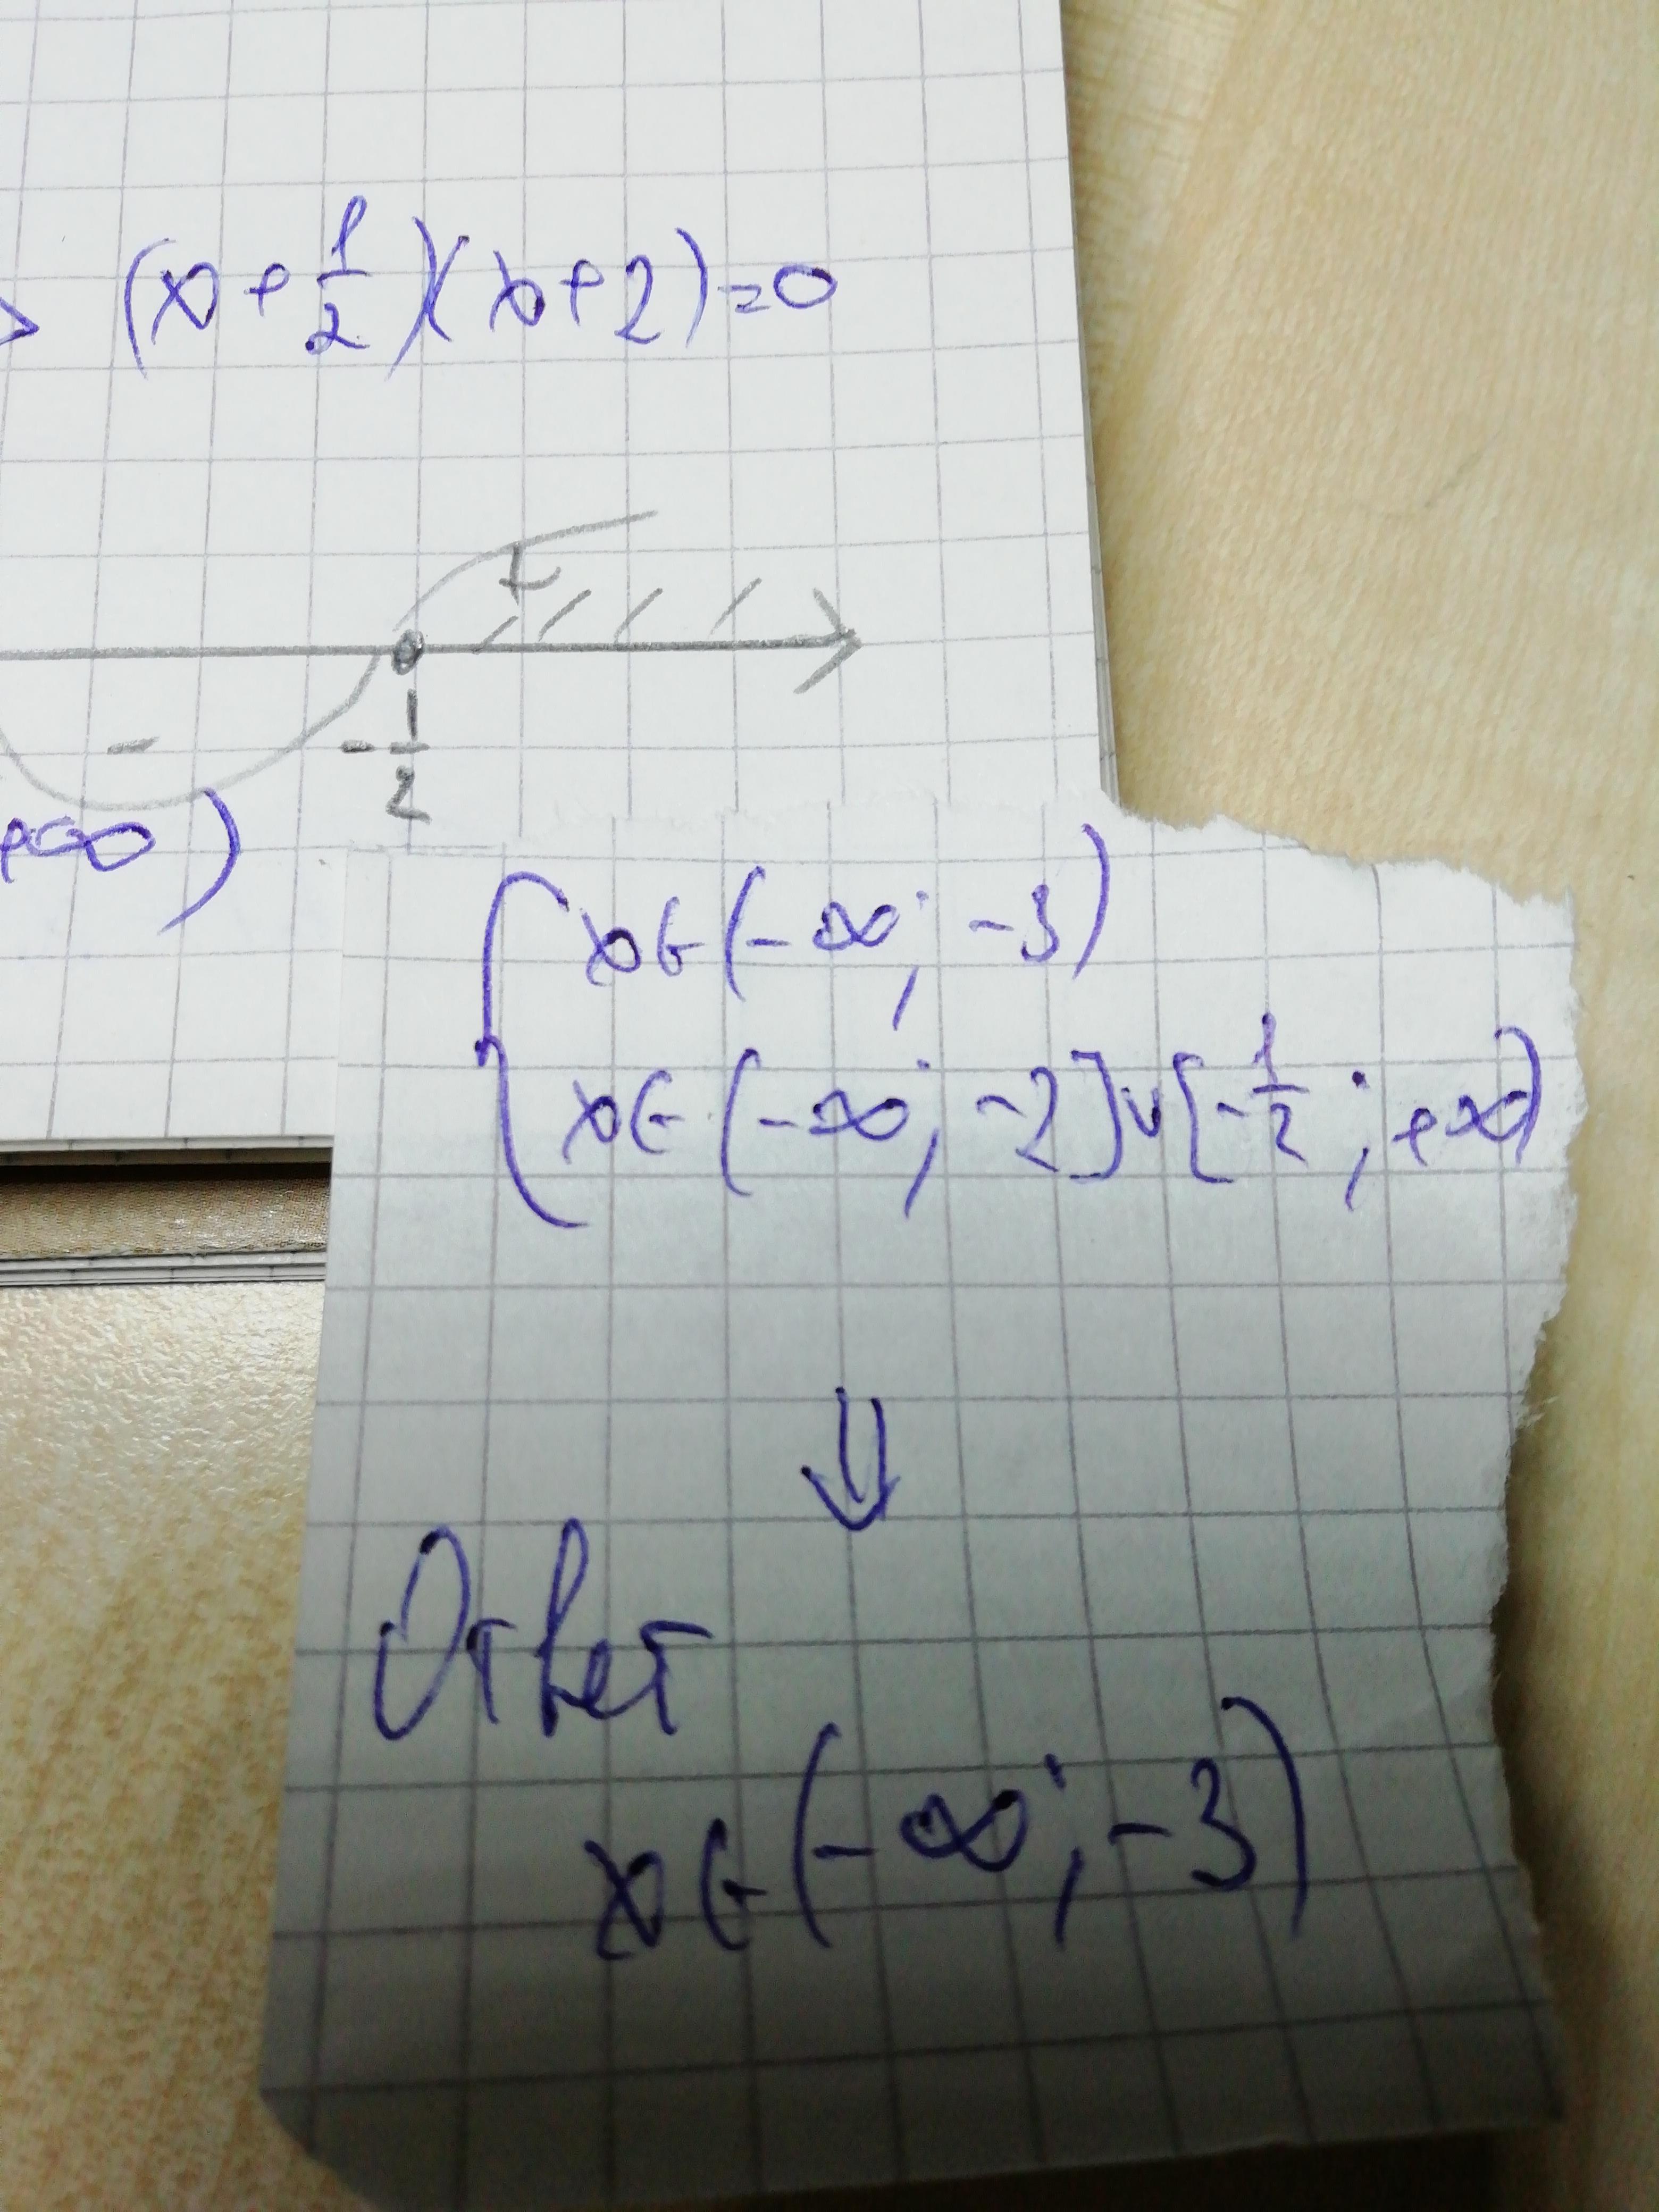 > (x+1/2)(x+2)=0
+
- -1/2
+∞)
{ x∈(-∞; -3)
x∈(-∞; -2]∪[-1/2; +∞)
⇓
Ответ
x∈(-∞; -3)